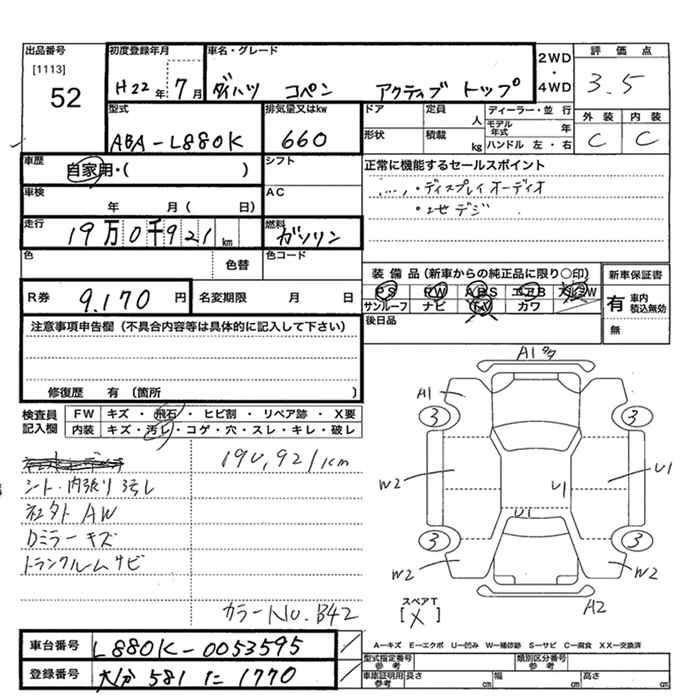 出品番号
[1113]
52
初度登録年月
H22年 7月
車名・グレード
ダイハツ コペン アクティブ トップ
2WD
・
4WD
評価点
3.5
外装 内装
C C
型式
ABA-L880K
排気量又はkw
660
ドア 定員 人
形状 積載 kg
ディーラー・並行
モデル年式 年
ハンドル 左・右
車歴
自家用・( )
シフト
正常に機能するセールスポイント
・ディスプレイオーディオ
・地デジ
車検
年 月( 日)
AC
走行
19万0千921km
燃料
ガソリン
色
色替
色コード
装備品(新車からの純正品に限り○印)
PS PW ABS エアB
サンルーフ ナビ TV カワ
新車保証書
有 車内積込無効
無
R券
9,170円
名変期限 月 日
後日品
注意事項申告欄(不具合内容等は具体的に記入して下さい)
修復歴 有(箇所 )
検査員記入欄
FW キズ・飛石・ヒビ割・リペア跡・X要
内装 キズ・汚レ・コゲ・穴・スレ・キレ・破レ
190,921km
シート・内張り汚レ
社外AW
ミラーキズ
トランクルームサビ
カラーNo. B42
A1
A1
3 3
W2
U1
U1
U1
3 3
W2 W2
A2
スペアT
[X]
車台番号
L880K-0053595
登録番号
大分 581 に 1770
A-キズ E-エクボ U-凹み W-補修跡 S-サビ C-腐食 XX-交換済
型式指定番号参考
類別区分番号参考
車庫証明用参考
長さ cm
幅 cm
高さ cm